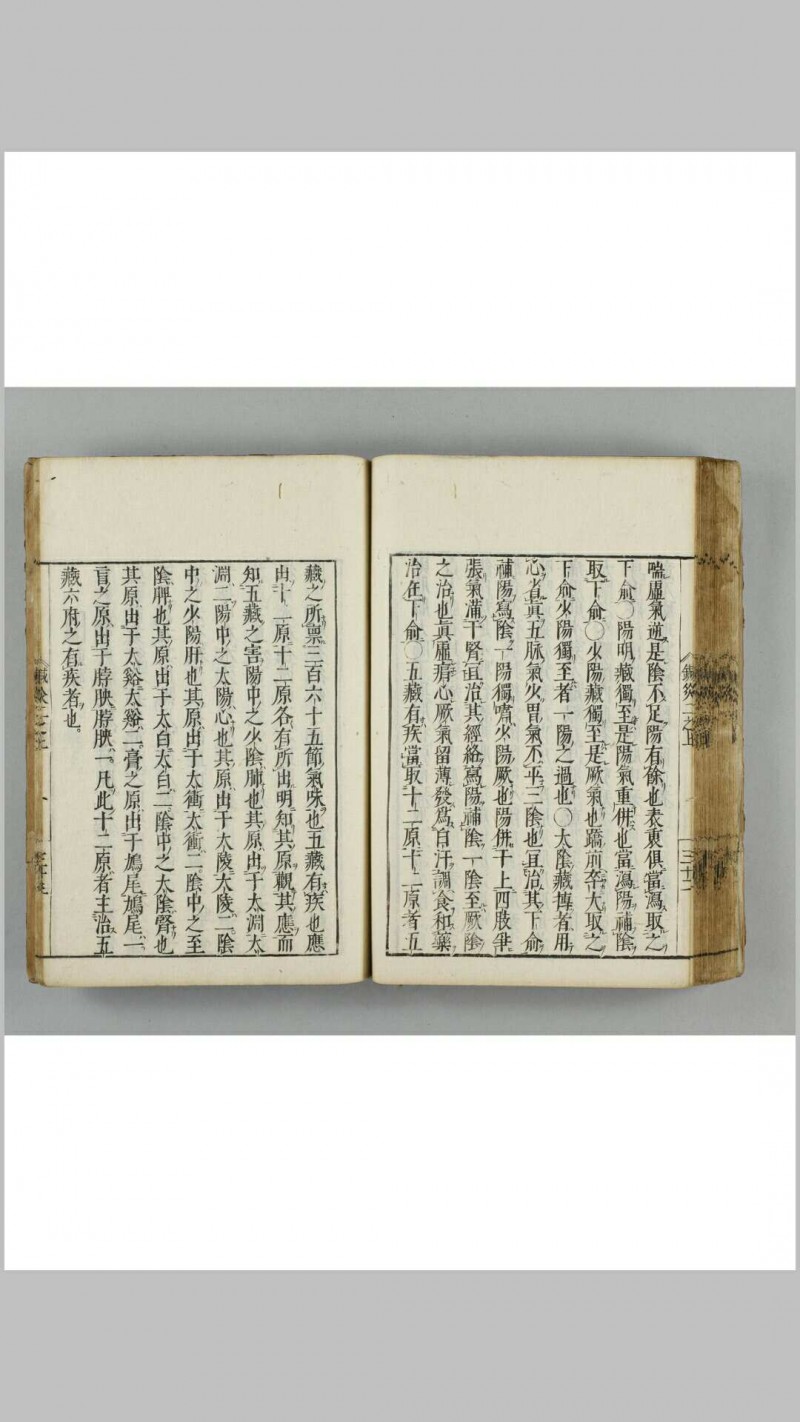 喘虛氣逆是陰不足陽有餘也表裏俱當瀉取之
下俞〇陽明藏獨至是陽氣重併也當瀉陽補陰
取下俞〇少陽藏獨至是厥氣也蹻前卒大取之
下俞少陽獨至者一陽之過也〇太陰藏搏者用
心省眞五脉氣少胃氣不平三陰也宜治其下俞
補陽寫陰一陽獨嘯少陽厥也陽併于上四脉爭
張氣滿于腎宜治其經絡寫陽補陰一陰至厥陰
之治也眞虛㾓心厥氣留薄發爲白汗調食和藥
治在下俞〇五藏有疾當取十二原十二原者五
鍼灸二之上
三十二
藏之所禀三百六十五節氣味也五藏有疾也應
出十二原十二原各有所出明知其原觀其應而
知五藏之害陽中之少陰肺也其原出于太淵太
淵二陽中之太陽心也其原出于太陵太陵二陰
中之少陽肝也其原出于太衝太衝二陰中之至
陰脾也其原出于太白太白二陰中之太陰腎也
其原出于太谿太谿二膏之原出于鳩尾鳩尾一
肓之原出于脖胦脖胦一凡此十二原者主治五
藏六府之有疾者也